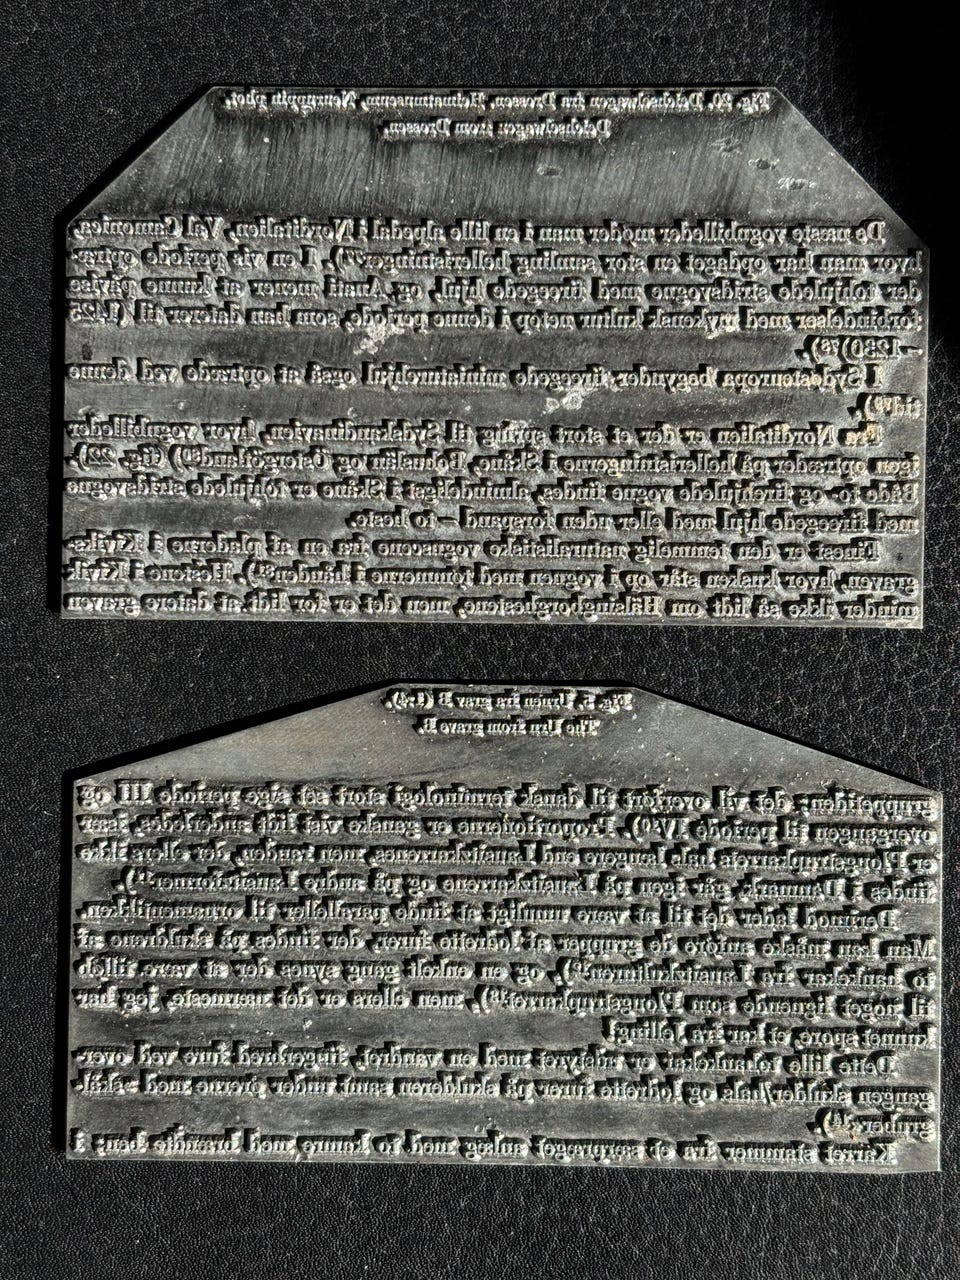 Fig. 20. Deichselwagen fra Drossen, Heimatmuseum, Neuruppin phot.
Deichselwagen from Drossen.
De næste vognbilleder møder man i en lille alpedal i Norditalien, Val Camonica,
hvor man har opdaget en stor samling helleristninger⁷⁷). I en vis periode optræ-
der tohjulede stridsvogne med fireegede hjul, og Anati mener at kunne påvise
forbindelser med mykensk kultur netop i denne periode, som han daterer til (1425
– 1230)⁷⁸).
I Sydøsteuropa begynder fireegede miniaturehjul også at optræde ved denne
tid⁷⁹).
Fra Norditalien er der et stort spring til Sydskandinavien, hvor vognbilleder
igen optræder på helleristningerne i Skåne, Bohuslän og Östergötland⁸⁰) (fig. 22).
Både to- og firehjulede vogne findes, almindeligst i Skåne er tohjulede stridsvogne
med fireegede hjul med eller uden forspand – to heste.
Finest er den temmelig naturalistiske vognscene fra en af pladerne i Kivik-
graven, hvor kusken står op i vognen med tømmerne i hånden⁸¹). Hestene i Kivik
minder ikke så lidt om Hälsingborghestene, men det er for lidt at datere graven
Fig. 5. Urnen fra grav B (1:4).
The Urn from grave B.
gruppetiden; det vil overført til dansk terminologi stort set sige periode III og
overgangen til periode IV⁴⁰). Proportionerne er ganske vist lidt anderledes, især
er Plougstrupkarrets hals længere end Lausitzkarrenes, men randen, der ellers ikke
findes i Danmark, går igen på Lausitzkarrene og på andre Lausitzformer⁴¹).
Derimod lader det til at være umuligt at finde paralleller til ornamentikken.
Man kan måske anføre de grupper af lodrette furer, der findes på skuldrene af
to hankekar fra Lausitzkulturen⁴²), og en enkelt gang synes der at være tilløb
til noget lignende som Plougstrupkarrets⁴³), men ellers er det nærmeste, jeg har
kunnet spore, et kar fra Jelling!
Dette lille tohankekar er udstyret med en vandret, fingerbred fure ved over-
gangen skulder/hals og lodrette furer på skulderen samt under ørerne med »skål-
gruber«⁴⁴).
Karret stammer fra et særpræget anlæg med to kamre med brændte ben; i